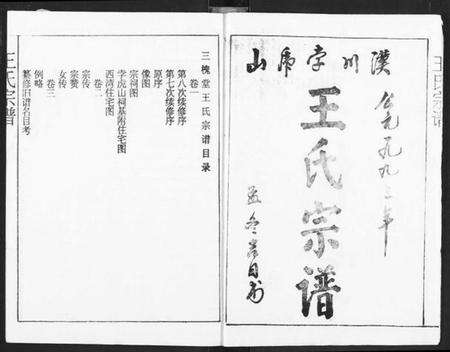 王氏宗谱
漢川李虎山
公元一九九三年
王氏宗谱
孟冬
三槐堂王氏宗谱目录
卷一
第八次续修序
第七次续修序
原序
像图
宗祠图
李虎山祠基附住宅图
西湾住宅图
卷二
宗传
宗赞
女传
卷三
例略
纂修旧谱名目考
王氏宗谱